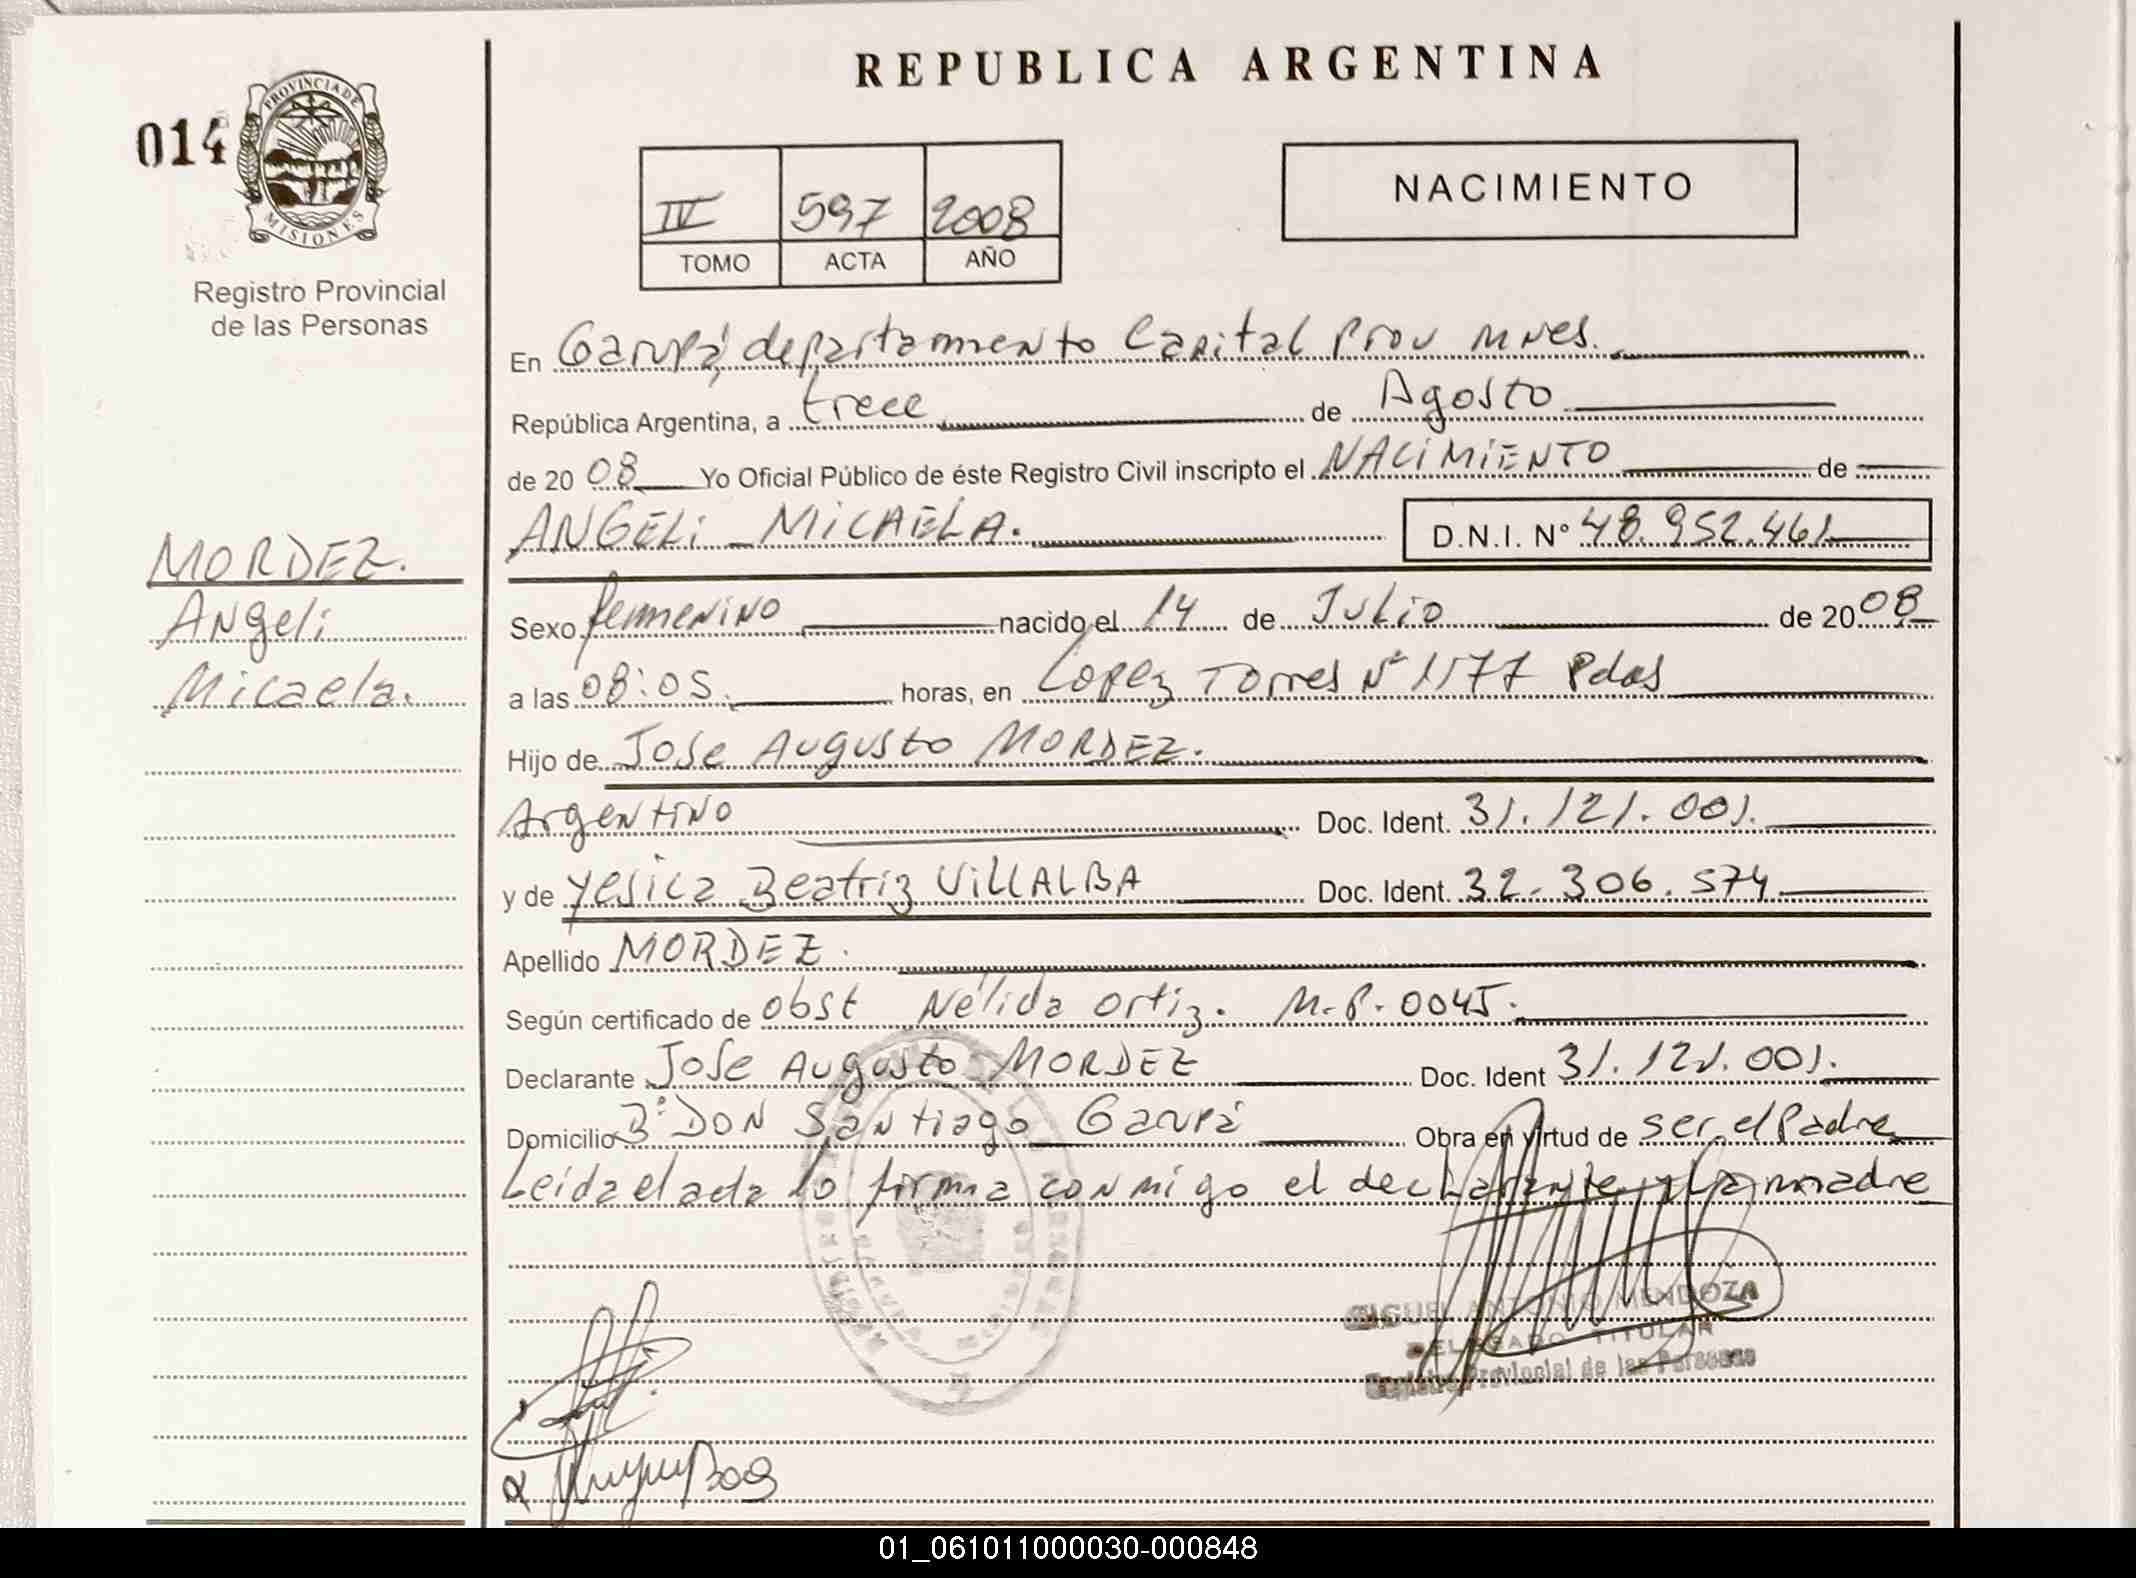 REPUBLICA ARGENTINA
014
PROVINCIA DE
MISIONES
Registro Provincial
de las Personas
IV 597 2008
TOMO ACTA AÑO
NACIMIENTO
En Garupá, departamento Capital Prov Mnes.
República Argentina, a trece de Agosto
de 2008 Yo Oficial Público de éste Registro Civil inscripto el NACIMIENTO de
ANGELI MICAELA. D.N.I. N° 48.952.461
MORDEZ.
Angeli
Micaela.
Sexo femenino nacido el 14 de Julio de 2008
a las 08:05. horas, en Lopez Torres N° 1177 Pdas
Hijo de Jose Augusto MORDEZ.
Argentino Doc. Ident. 31.121.001.
y de Yesica Beatriz VILLALBA Doc. Ident. 32.306.574
Apellido MORDEZ.
Según certificado de obst Nélida Ortiz. M.P. 0045.
Declarante Jose Augusto MORDEZ Doc. Ident 31.121.001.
Domicilio B° DON Santiago Garupá Obra en virtud de ser el Padre
Leida el acta lo firma conmigo el declarante y La madre
MIGUEL ANTONIO MENDOZA
DELEGADO TITULAR
Registro Provincial de las Personas
01_061011000030-000848